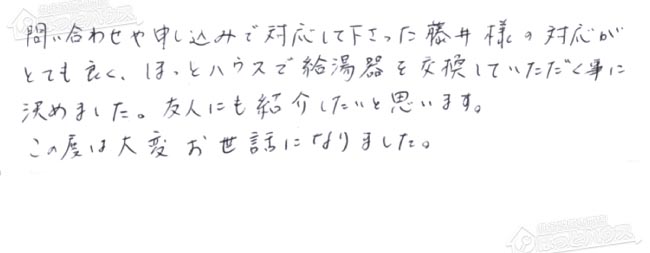 問い合わせや申し込みで対応して下さった藤井様の対応が
とても良く、ほっとハウスで給湯器を交換していただく事に
決めました。友人にも紹介したいと思います。
この度は大変お世話になりました。
ほっとハウス